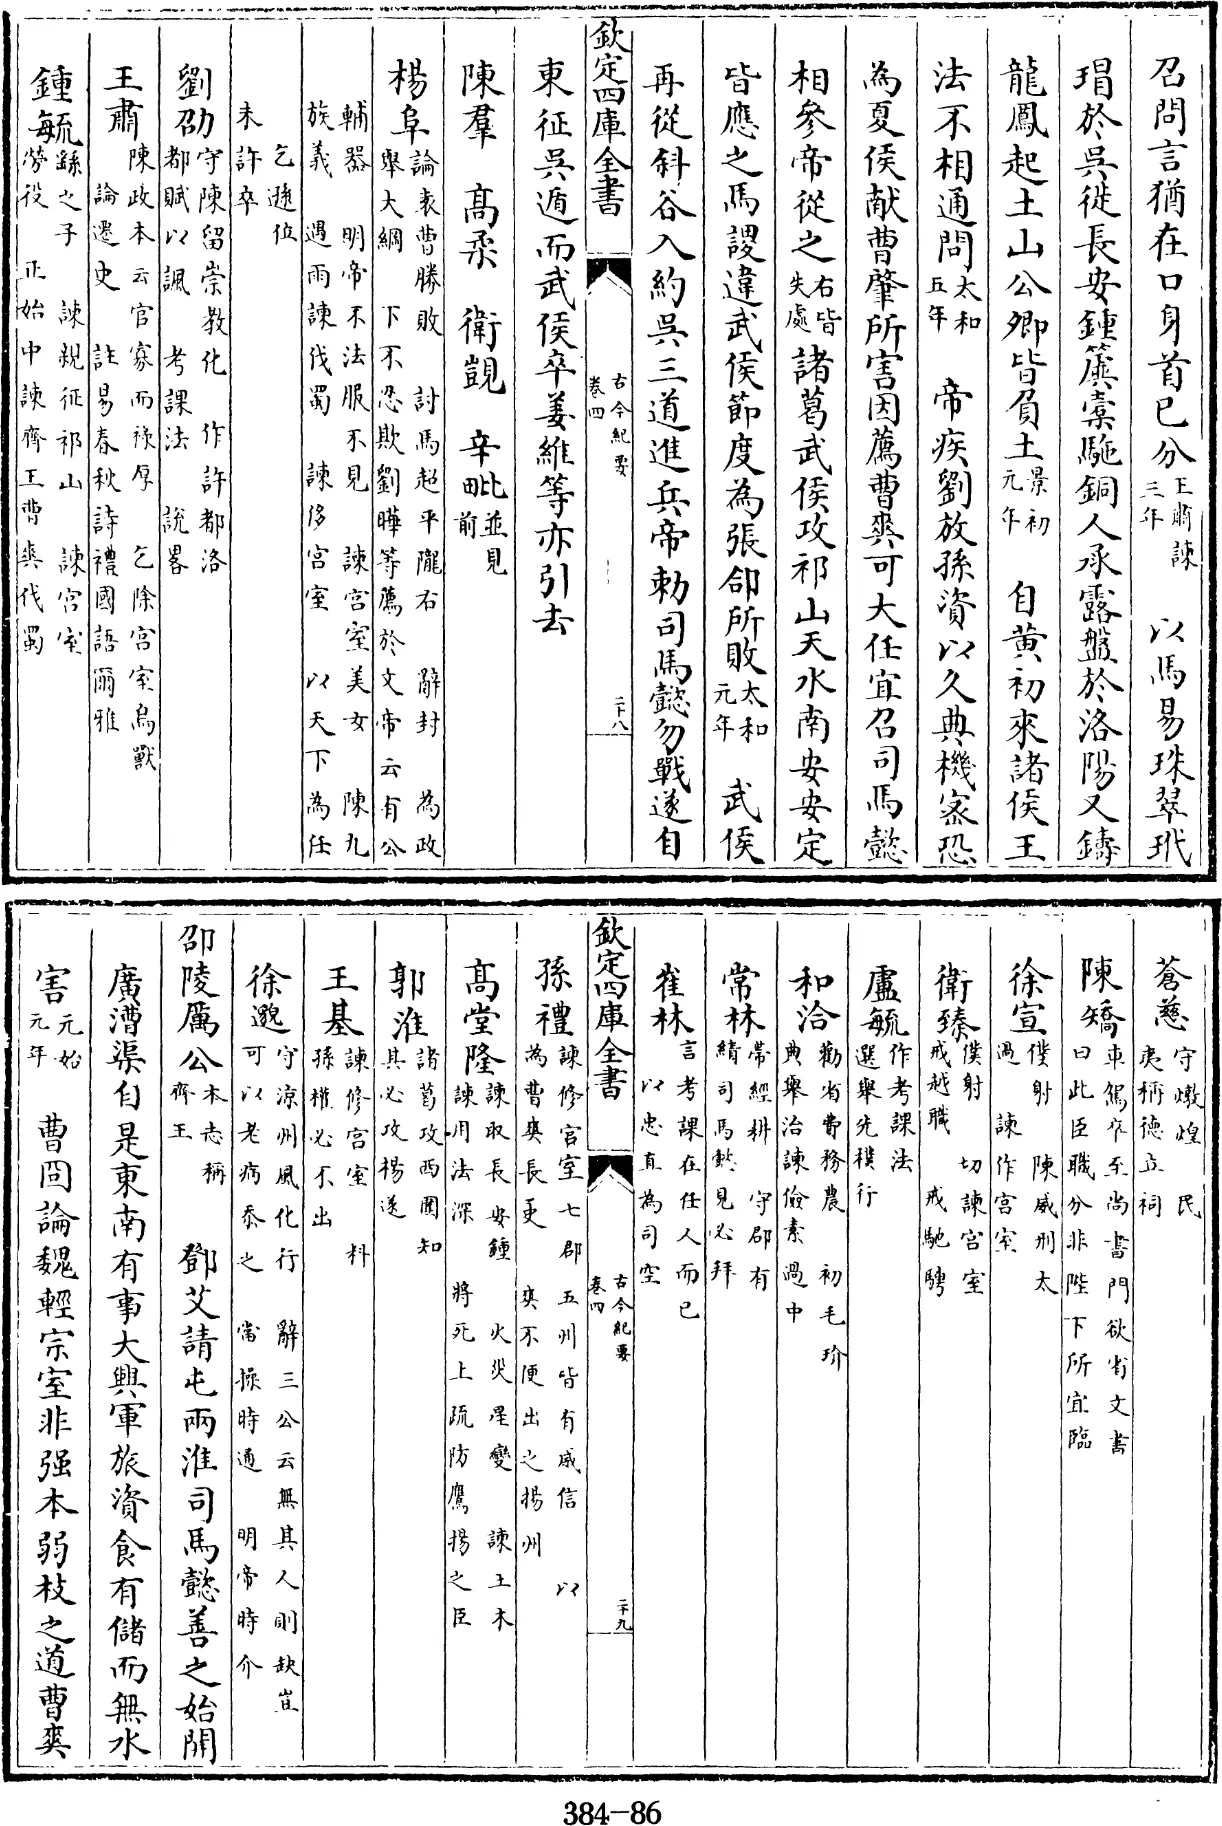 召問言猶在口身首已分王肅諫三年 以馬易珠翠玳
瑁於吳徙長安鍾簴橐駞銅人承露盤於洛陽又鑄
龍鳳起土山公卿皆負土景初元年 自黄初來諸侯王
法不相通問太和五年 帝疾劉放孫資以久典機宻恐
為夏侯献曹肇所害因薦曹爽可大任宜召司馬懿
相參帝從之右皆失處諸葛武侯攻祁山天水南安安定
皆應之馬謖違武侯節度為張郃所敗太和元年 武侯
再從斜谷入約吳三道進兵帝勅司馬懿勿戰遂自
欽定四庫全書 古今紀要 卷四 二十八
東征吳遁而武侯卒姜維等亦引去
陳羣 髙柔 衛覬 辛毗並見前
楊阜論袁曹勝敗 討馬超平隴右 辭封 為政
舉大綱 下不忍欺劉曄等薦於文帝云有公
輔器 明帝不法服不見 諫宫室美女 陳九
族義 遇雨諫伐蜀 諫侈宫室 以天下為任
乞遜位
未許卒
劉劭守陳留崇教化 作許都洛
都賦以諷 考課法 説畧
王肅陳政本云官寡而祿厚 乞除宫室鳥獸
論遷史 註易春秋詩禮國語爾雅
鍾毓繇之子 諫親征祁山 諫宫室
勞役 正始中諫齊王曹爽伐蜀
蒼慈守燉煌 民
夷稱德立祠
陳矯車駕卒至尚書門欲省文書
曰此臣職分非陛下所宜臨
徐宣僕射 陳威刑太
過 諫作宫室
衛臻僕射 切諫宫室
戒越職 戒馳騁
盧毓作考課法
選舉先積行
和洽勸省費務農 初毛玠
典舉洽諫儉素過中
常林帶經耕 守郡有
績司馬懿見必拜
崔林言考課在任人而已
以忠直為司空
欽定四庫全書 古今紀要 卷四 二十九
孫禮諫修宫室七郡 五州皆有威信 以
為曹爽長吏 爽不便出之揚州
髙堂隆諫取長安鍾 火災星變 諫土木
諫用法深 將死上疏防鷹揚之臣
郭淮諸葛攻西圍知
其必攻楊遂
王基諫修宫室 料
孫權必不出
徐邈守涼州風化行 辭三公云無其人則缺豈
可以老病忝之 當操時通 明帝時介
邵陵厲公本志稱齊王 鄧艾請屯兩淮司馬懿善之始開
廣漕渠自是東南有事大興軍旅資食有儲而無水
害元始元年 曹冏論魏輕宗室非强本弱枝之道曹爽
384-86